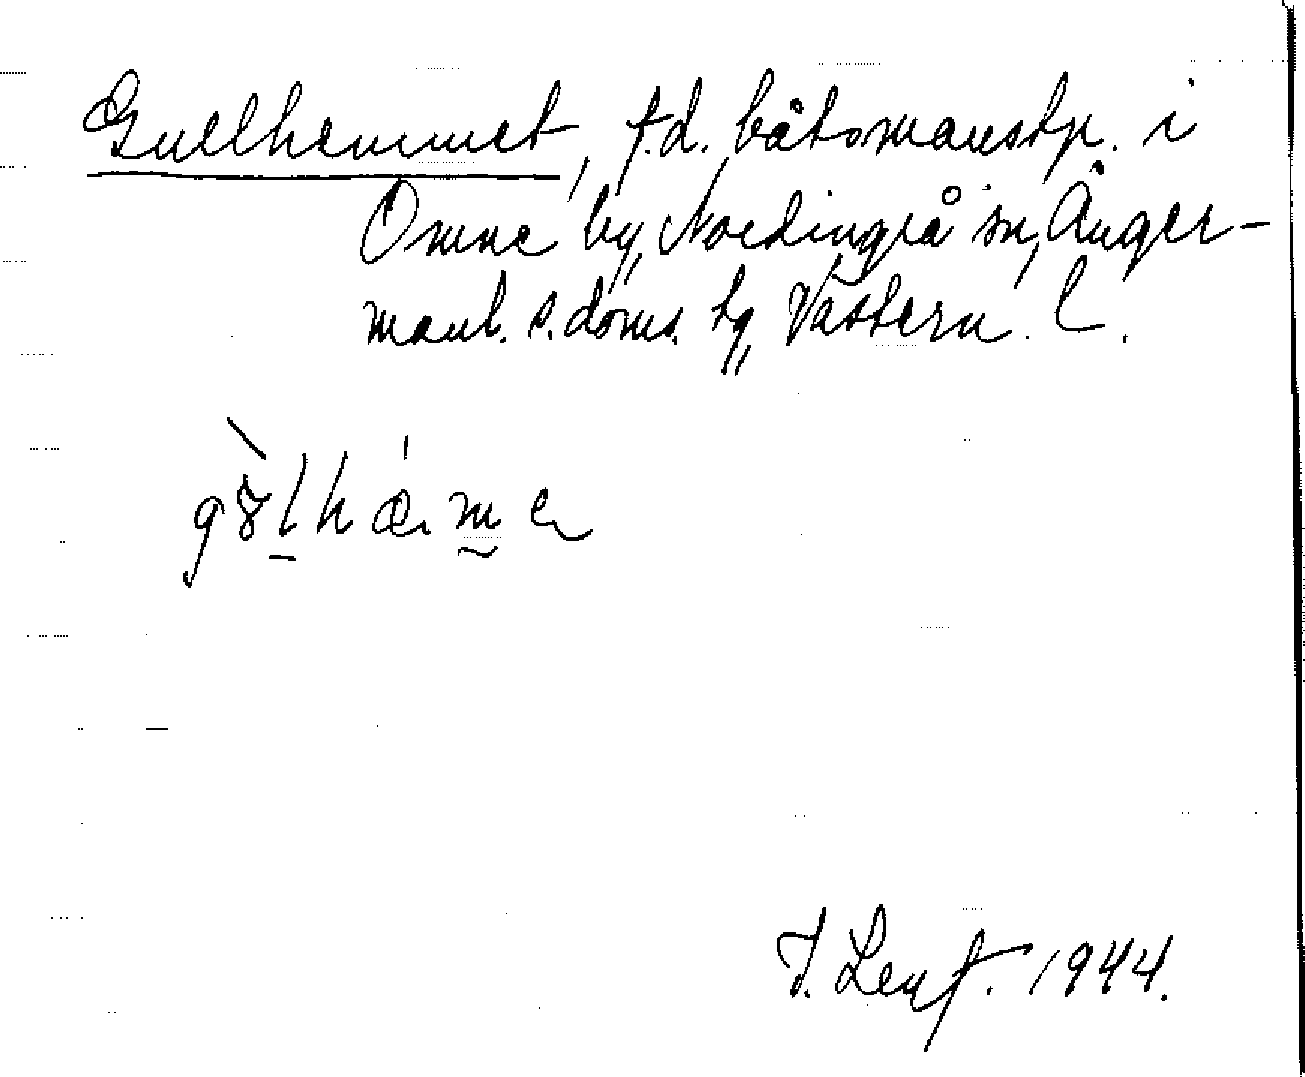 Gullhemmet, f.d. båtsmanstp. i
Omne by, Nordingrå sn, Ånger-
manl. s. doms. tg, Västern. l.
J. Lenf. 1944.